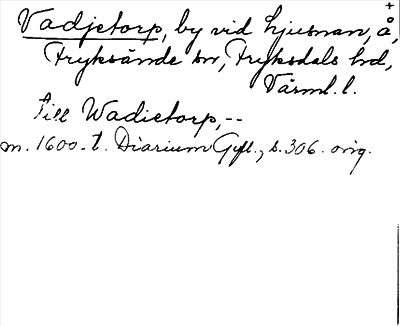 Vadjetorp, by vid Ljusnan, å,
Fryksände sn, Fryksdals hd,
Värml. l.
till Wadietorp, --
m. 1600-t. Diarium Gyll., s. 306. orig.